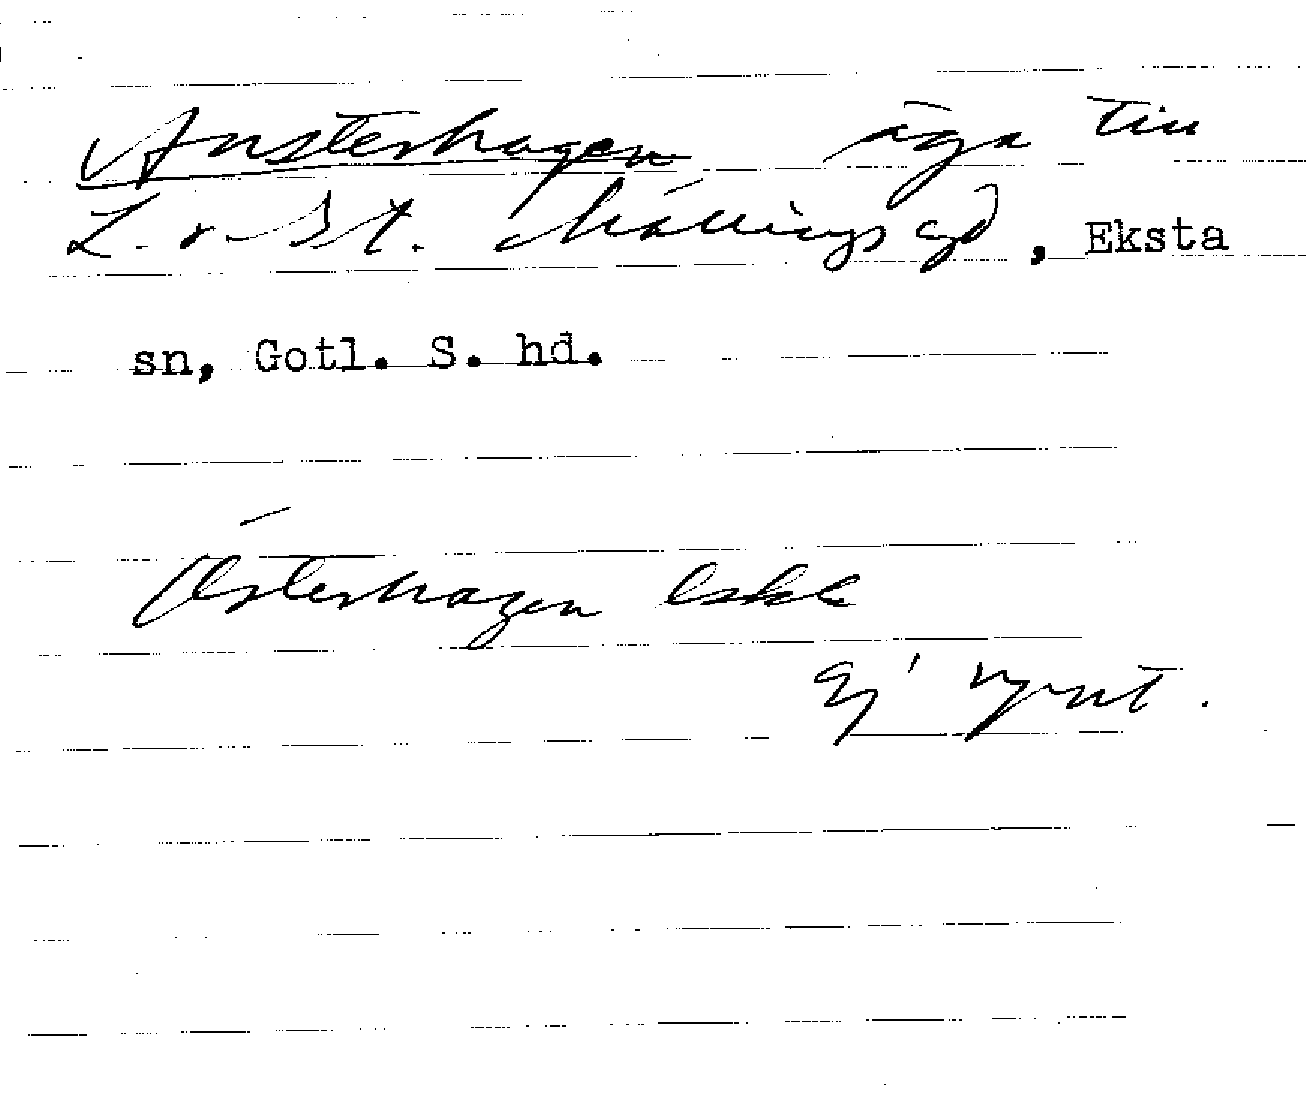 Austerhagen äga till
L. o. St. Mällings gd, Eksta
sn, Gotl. S. hd.
Österhagen Eskk
Ej rynt.